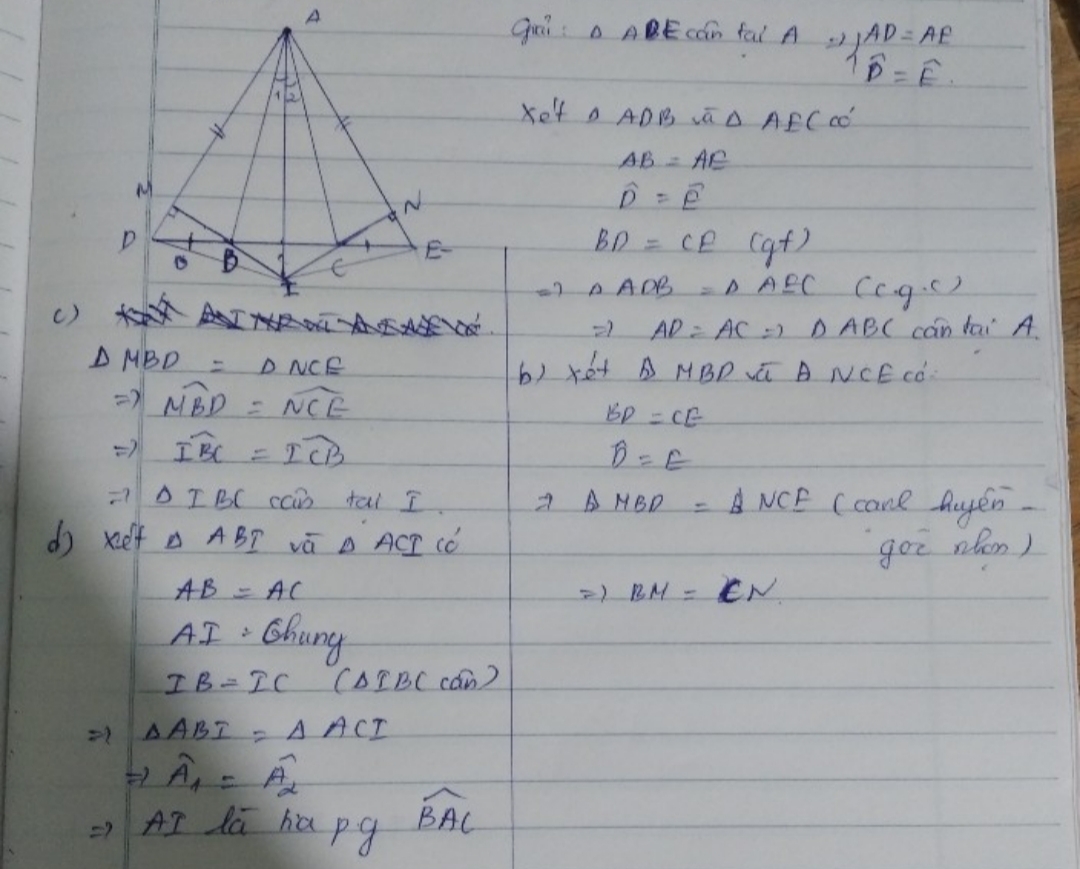 A
1 2
M
N
D
B
C
E
I
Giải: Δ ADE cân tại A => AD = AE
D̂ = Ê.
Xét Δ ADB và Δ AEC có
AB = AE
D̂ = Ê
BD = CE (gt)
=> Δ ADB = Δ AEC (c.g.c)
=> AD = AC => Δ ABC cân tại A.
b) Xét Δ MBD và Δ NCE có:
BD = CE
D̂ = E
=> Δ MBD = Δ NCE (cạnh huyền -
góc nhọn)
=> BM = CN.
c)
Δ MBD = Δ NCE
=> MBD̂ = NCÊ
=> IBĈ = ICB̂
=> Δ IBC cân tại I.
d) Xét Δ ABI và Δ ACI có
AB = AC
AI : Chung
IB = IC (Δ IBC cân)
=> Δ ABI = Δ ACI
=> Â1 = Â2
=> AI là tia p.g BAĈ